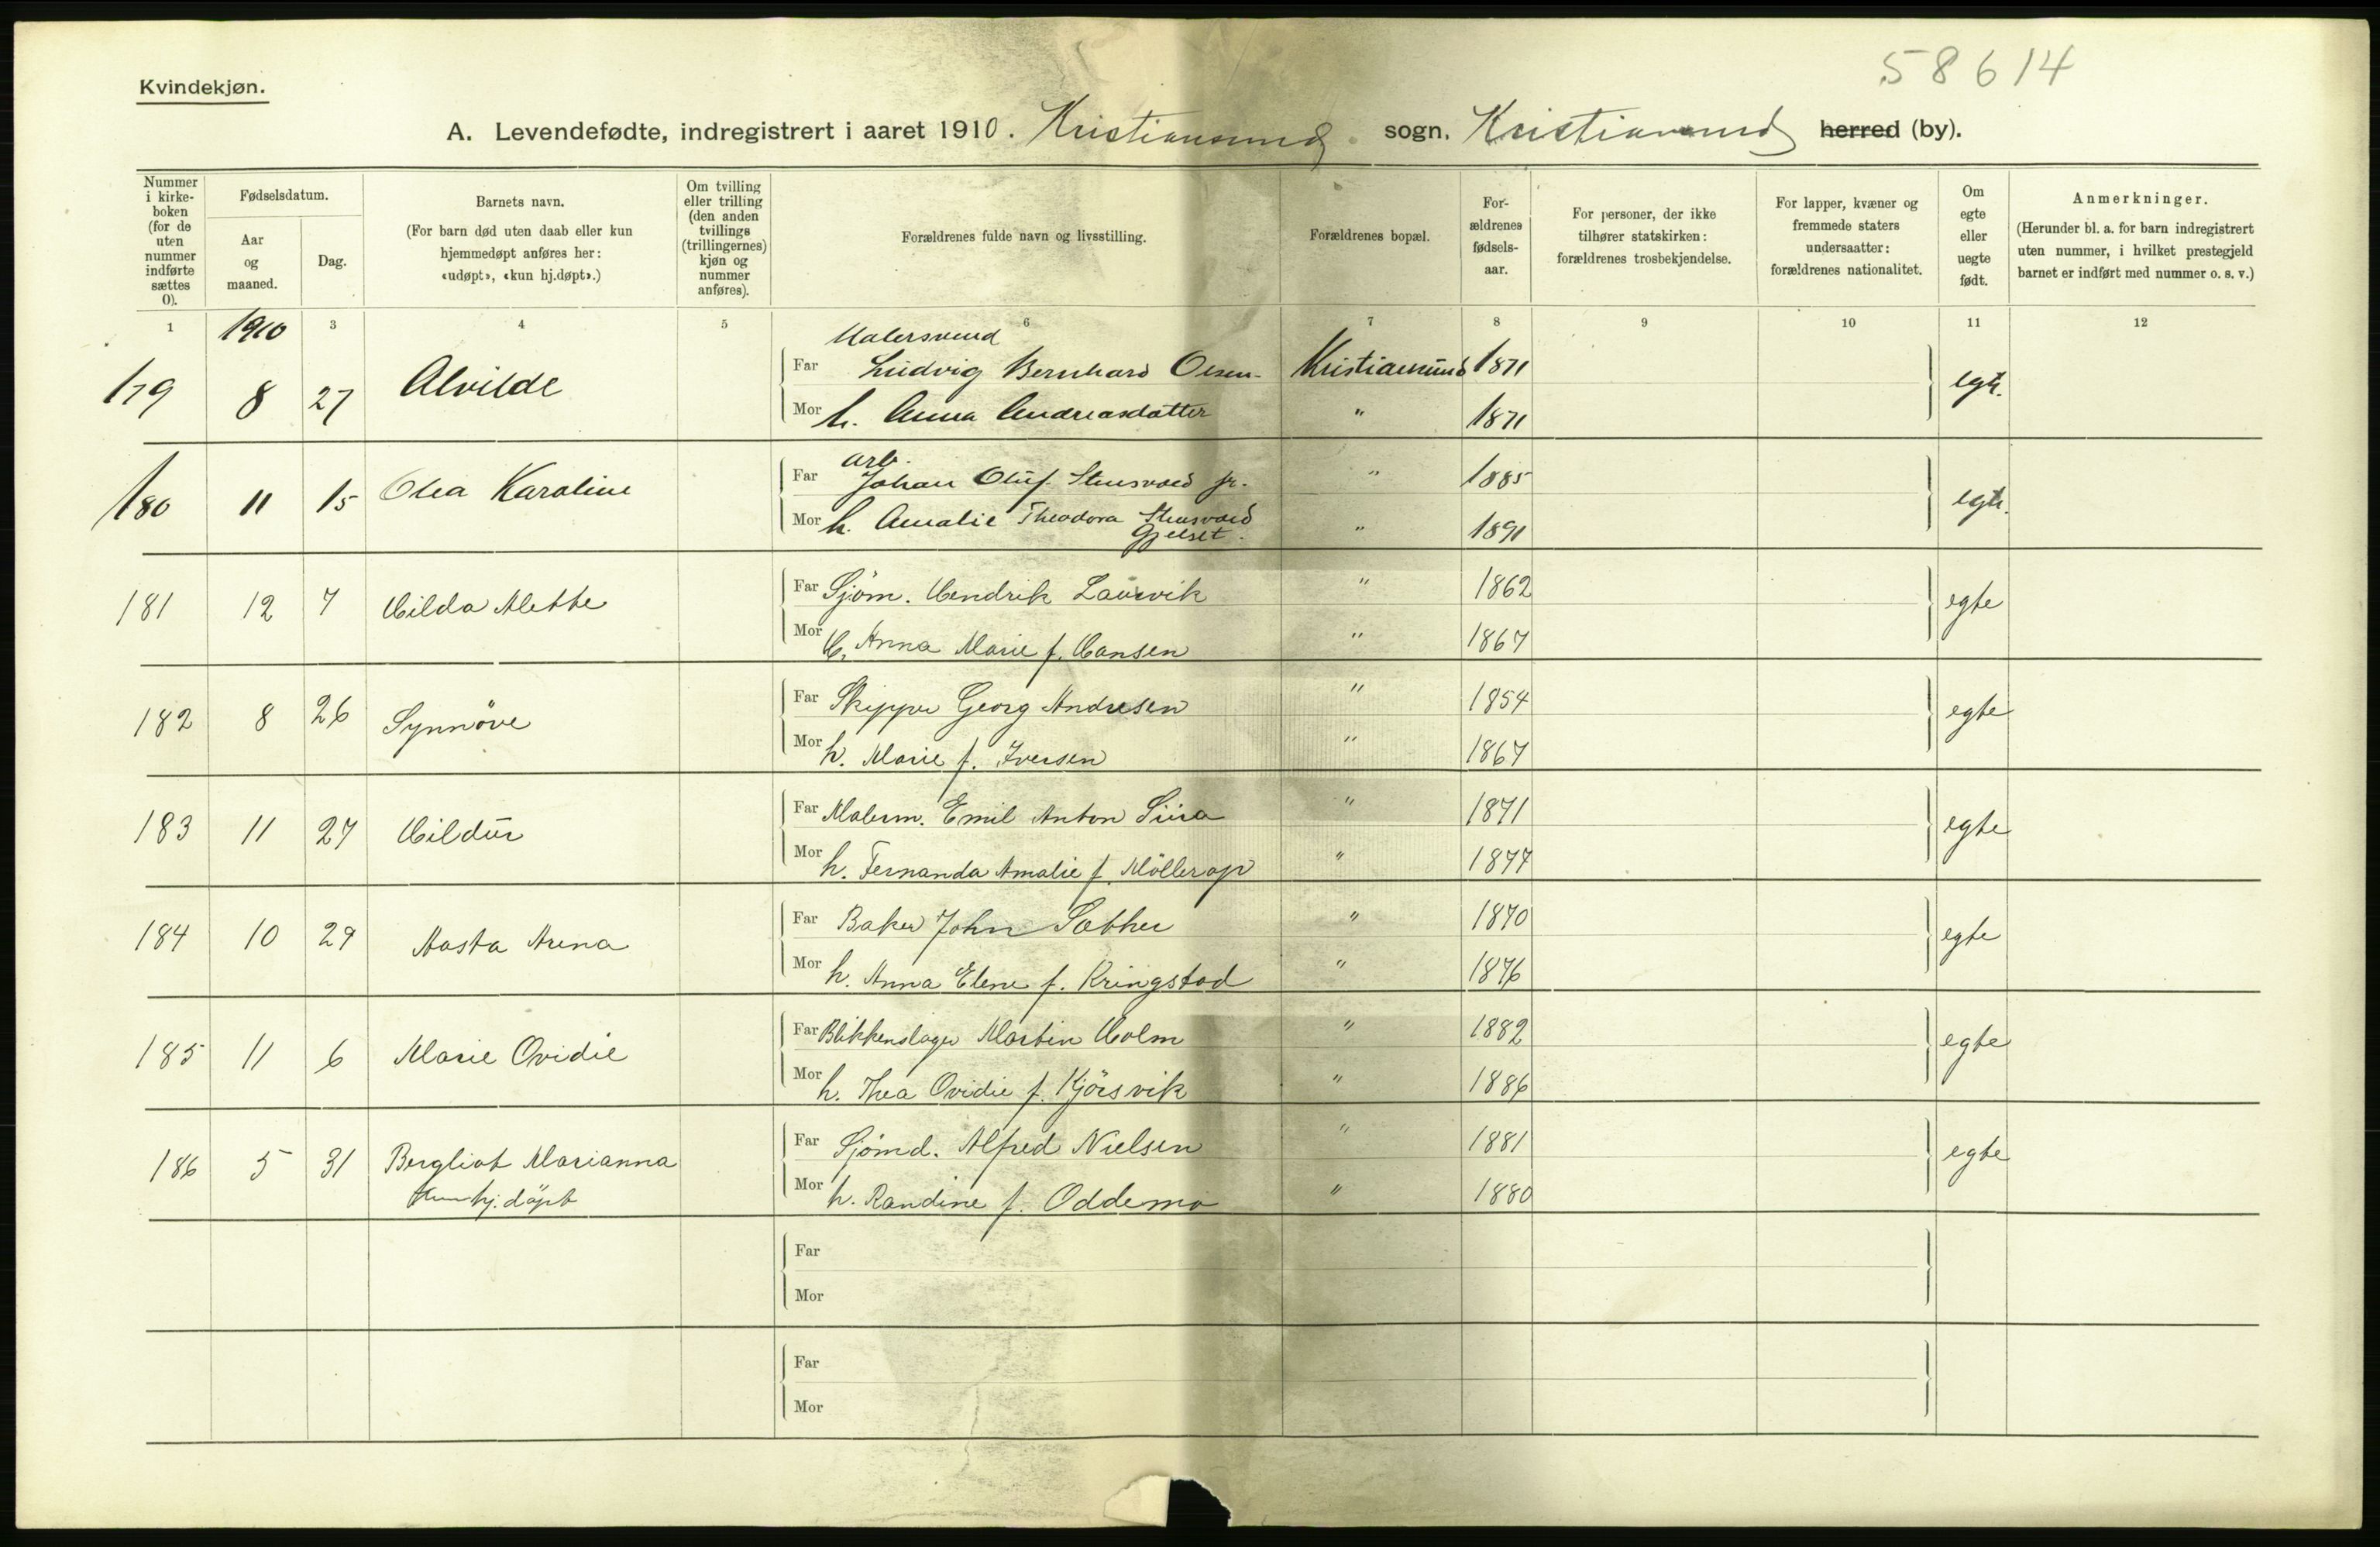 58614
Kvindekjøn.
A. Levendefødte, indregistrert i aaret 1910. Kristiansund sogn. Kristiansund herred (by).
Nummer i kirke-boken (for de uten nummer indførte sættes 0).
Fødselsdatum.
Aar og maaned.
Dag.
Barnets navn.
(For barn død uten daab eller kun hjemmedøpt anføres her: «udøpt», «kun hj.døpt».)
Om tvilling eller trilling (den anden tvillings (trillingernes) kjøn og nummer anføres).
Forældrenes fulde navn og livsstilling.
Forældrenes bopæl.
For-ældrenes fødsels-aar.
For personer, der ikke tilhører statskirken: forældrenes trosbekjendelse.
For lapper, kvæner og fremmede staters undersaatter: forældrenes nationalitet.
Om egte eller uegte født.
Anmerkninger.
(Herunder bl. a. for barn indregistrert uten nummer, i hvilket prestegjeld barnet er indført med nummer o. s. v.)
1 1910 3 4 5 6 7 8 9 10 11 12
Malersvend
179 8 27 Alvilde Far Ludvig Bernhard Olsen Kristiansund 1871 egte.
Mor h. Anna Andreasdatter " 1871
arb.
180 11 15 Olea Karoline Far Johan Oluf Stensvold jr. " 1885 egte.
Mor h. Amalie Theodora Stensvold " 1891
Gjelset.
181 12 7 Hilda Alette Far Sjöm. Hendrik Laurvik " 1862 egte
Mor H. Anna Marie f. Hansen " 1867
182 8 26 Synnöve Far Skipper Georg Andresen " 1854 egte
Mor h. Marie f. Iversen " 1867
183 11 27 Hildur Far Malerm. Emil Anton Siira " 1871 egte
Mor h. Fernanda Amalie f. Möllerop " 1877
184 10 29 Aasta Arena Far Baker John Sæther " 1870 egte
Mor h. Anna Elene f. Kringstad " 1876
185 11 6 Marie Ovidie Far Blikkenslager Martin Holm " 1882 egte
Mor h. Thea Ovidie f. Kjörsvik " 1886
186 5 31 Bergliot Marianna Far Sjömd. Alfred Nielsen " 1881 egte
Kun hj. döpt Mor h. Randine f. Oddemo " 1880
Far
Mor
Far
Mor